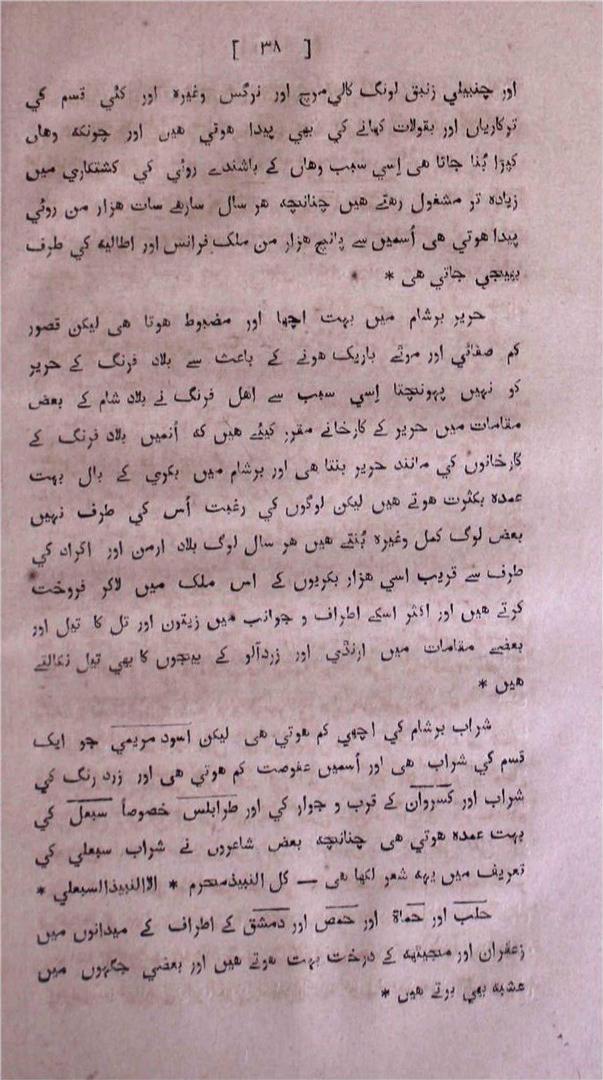 [ ٣٨ ]
اور چنبیلي زنبق لونگ کالي مرچ اور نرگس وغیرہ اور کئي قسم کي
ترکاریاں اور بقولات کھانے کي بھي پیدا ھوتي ھیں اور چونکہ وھاں
کپڑا بُنا جاتا ھی اِسي سبب وھاں کے باشندے روئي کي کشتکاري میں
زیادہ تر مشغول رھتے ھیں چنانچہ ھر سال ساڑھے سات ھزار من روئي
پیدا ھوتي ھی اُسمیں سے پانچ ھزار من ملک فرانس اور اطالیہ کي طرف
بھیجي جاتي ھی *
حریر برشام میں بہت اچھا اور مضبوط ھوتا ھی لیکن قصور
کم صفائي اور موٹے باریک ھونے کے باعث سے بلاد فرنگ کے حریر
کو نہیں پہونچتا اِسي سبب سے اھل فرنگ نے بلاد شام کے بعض
مقامات میں حریر کے کارخانے مقرر کیئے ھیں کہ اُنمیں بلاد فرنگ کے
کارخانوں کي مانند حریر بنتا ھی اور برشام میں بکري کے بال بہت
عمدہ بکثرت ھوتے ھیں لیکن لوگوں کي رغبت اُس کي طرف نہیں
بعض لوگ کمل وغیرہ بُنتے ھیں ھر سال لوگ بلاد ارمن اور اکراد کي
طرف سے قریب اسي ھزار بکریوں کے اس ملک میں لاکر فروخت
کرتے ھیں اور اکثر اسکے اطراف و جوانب میں زیتون اور تل کا تیل اور
بعضے مقامات میں ارنڈي اور زردآلو کے بیجوں کا بھي تیل نکالتے
ھیں *
شراب برشام کي اچھي کم ھوتي ھی لیکن اسود مریمي جو ایک
قسم کي شراب ھی اور اُسمیں عفوصت کم ھوتي ھی اور زرد رنگ کي
شراب اور کسروان کے قرب و جوار کي اور طرابلس خصوصاً سبعل کي
بہت عمدہ ھوتي ھی چنانچہ بعض شاعروں نے شراب سبعلي کي
تعریف میں یہہ شعر لکھا ھی — کل النبیذ محرم * الا النبیذ السبعلي *
حلب اور حماۃ اور حمص اور دمشق کے اطراف کے میدانوں میں
زعفران اور مجیٹھہ کے درخت بہت ھوتے ھیں اور بعضي جگہوں میں
عشبہ بھي بوتے ھیں *